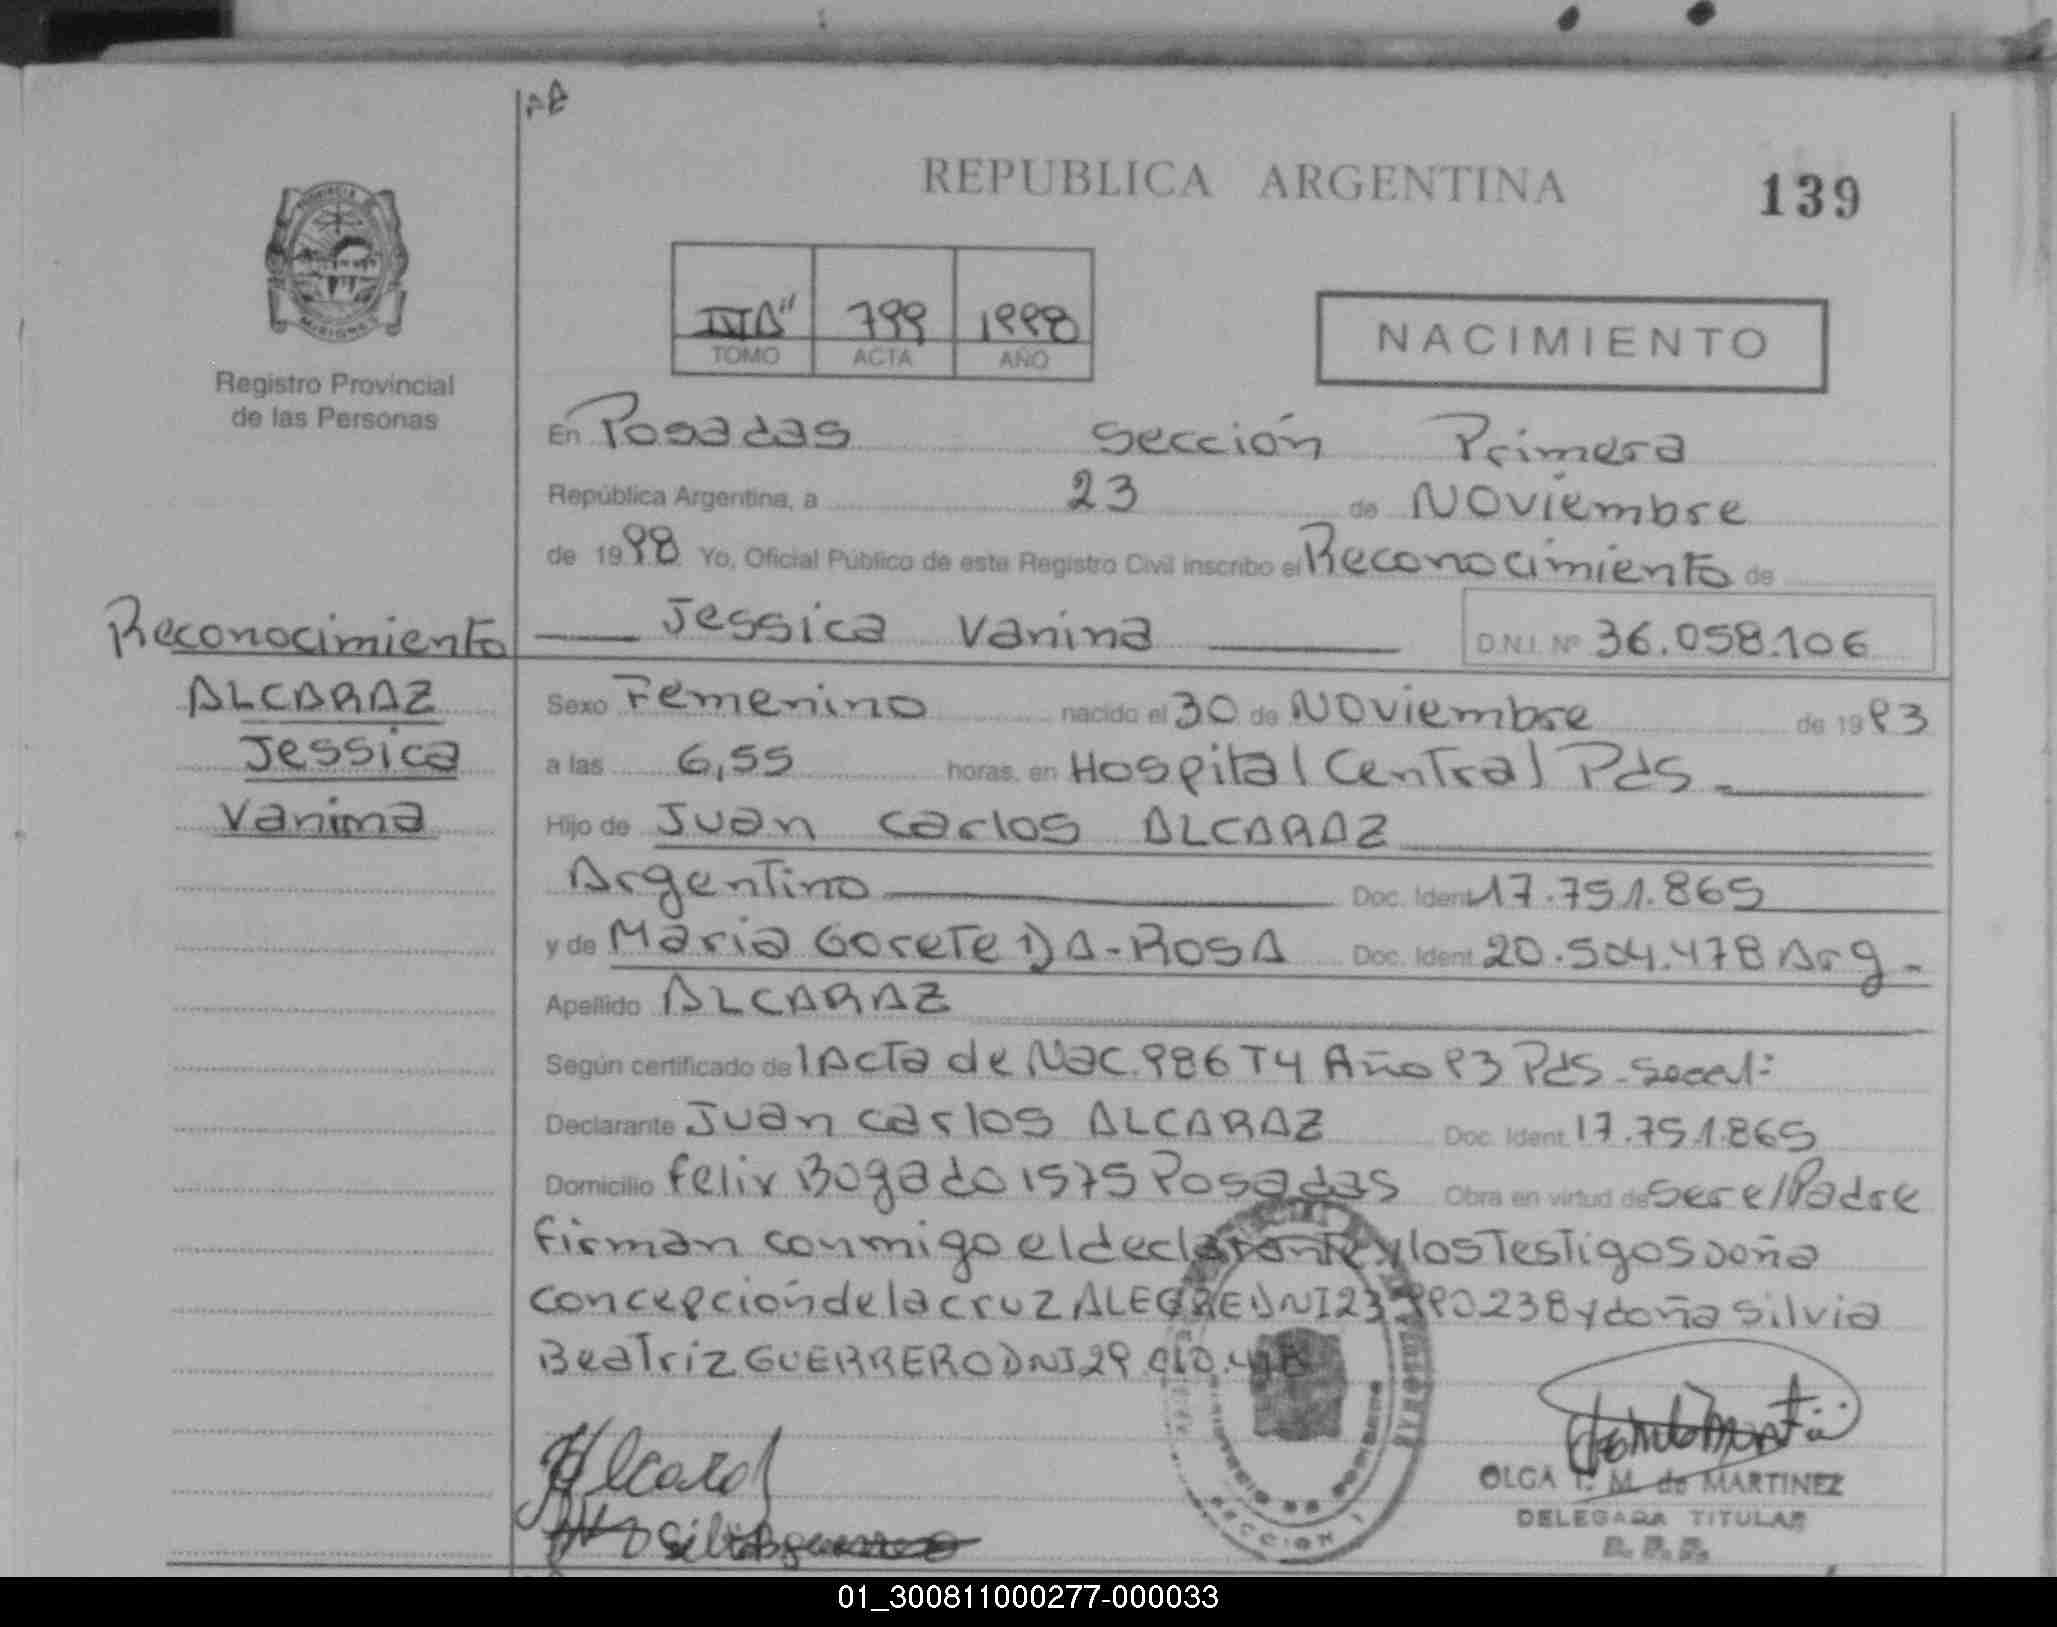 REPUBLICA ARGENTINA
139
Registro Provincial
de las Personas
799 1998
TOMO ACTA AÑO
NACIMIENTO
En Posadas Sección Primera
República Argentina, a 23 de Noviembre
de 1998 Yo, Oficial Público de este Registro Civil inscribo el Reconocimiento de
Jessica Vanina D.N.I. Nº 36.058.106
Reconocimiento
ALCARAZ
Jessica
Vanina
Sexo Femenino nacido el 30 de Noviembre de 1993
a las 6,55 horas. en Hospital Central Pds
Hijo de Juan Carlos ALCARAZ
Argentino Doc. Ident. 17.751.865
y de Maria Gorete DA-ROSA Doc. Ident. 20.504.478 Arg.
Apellido ALCARAZ
Según certificado de 1 Acta de Nac. 986 T4 Año 93 Pds
Declarante Juan Carlos ALCARAZ Doc. Ident. 17.751.865
Domicilio Felix Bogado 1575 Posadas Obra en virtud de ser el Padre
firman conmigo el declarante y los Testigos doña
concepción de la cruz ALEGRE DNI 23 238 y doña Silvia
Beatriz GUERRERO DNI 29
SECCION 1
OLGA M. de MARTINEZ
DELEGADA TITULAR
01_300811000277-000033